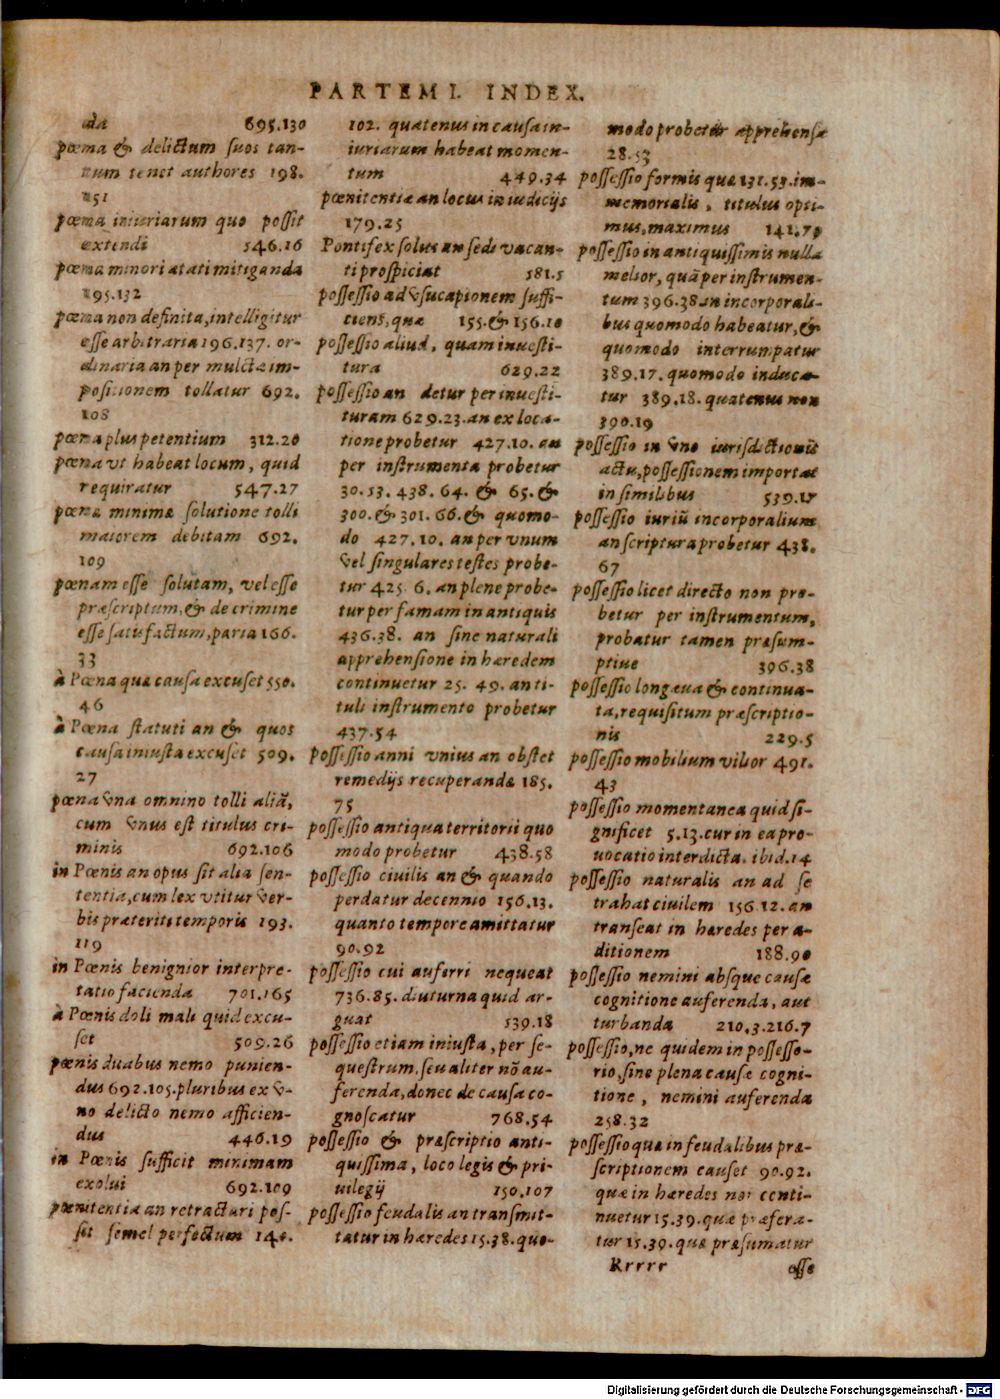 PARTEM I. INDEX.
da 695.130
pœna & delictum suos tan-
tum tenet authores 198.
151
pœna iniuriarum quo possit
extendi 546.16
pœna minori ætati mitiganda
195.132
pœna non definita, intelligitur
esse arbitraria 196.137. or-
dinaria an per mulctæ im-
positionem tollatur 692.
108
pœna plus petentium 312.20
pœna vt habeat locum, quid
requiratur 547.27
pœnæ minimæ solutione tolli
maiorem debitam 692.
109
pœnam esse solutam, vel esse
præscriptum, & de crimine
esse satisfactum, paria 166.
33
à Pœna quæ causa excuset 550.
46
à Pœna statuti an & quos
causa iniusta excuset 509.
27
pœna vna omnino tolli aliã,
cum vnus est titulus cri-
minis 692.106
in Pœnis an opus sit alia sen-
tentia, cum lex vtitur ver-
bis præteriti temporis 193.
119
in Pœnis benignior interpre-
tatio facienda 701.165
à Pœnis doli mali quid excu-
set 509.26
pœnis duabus nemo punien-
dus 692.105. pluribus ex v-
no delicto nemo afficien-
dus 446.19
in Pœnis sufficit minimam
exolui 692.109
pœnitentiæ an retractari pos-
sit semel perfectum 140.
102. quatenus in causa in-
iuriarum habeat momen-
tum 449.34
pœnitentiæ an locus in iudicijs
179.25
Pontifex solus an sedi vacan-
ti prospiciat 581.5
possessio ad vsucapionem suffi-
ciens, quæ 155. & 156.10
possessio aliud, quam inuesti-
tura 629.22
possessio an detur per inuesti-
turam 629.23. an ex loca-
tione probetur 427.10. an
per instrumenta probetur
30.53. 438. 64. & 65. &
300. & 301. 66. & quomo-
do 427.10. an per vnum
vel singulares testes probe-
tur 425 6. an plene probe-
tur per famam in antiquis
436.38. an sine naturali
apprehensione in hæredem
continuetur 25. 49. an ti-
tuli instrumento probetur
437.54
possessio anni vnius an obstet
remedijs recuperandæ 185.
75
possessio antiqua territorii quo
modo probetur 438.58
possessio ciuilis an & quando
perdatur decennio 156.13.
quanto tempore amittatur
90.92
possessio cui auferri nequeat
736.85. diuturna quid ar-
guat 539.18
possessio etiam iniusta, per se-
questrum, seu aliter nõ au-
ferenda, donec de causa co-
gnoscatur 768.54
possessio & præscriptio anti-
quissima, loco legis & pri-
uilegij 150.107
possessio feudalis an transmit-
tatur in hæredes 15.38. quo-
modo probetur apprehensæ
28.53
possessio formis quæ 131.53. im-
memorialis, titulus opti-
mus, maximus 141.79
possessio in antiquissimis nulla
melior, quã per instrumen-
tum 396.38 an in incorporali-
bus quomodo habeatur, &
quomodo interrumpatur
389.17. quomodo induca-
tur 389.18. quatenus non
390.19
possessio in vno iurisdictionis
actu, possessionem importat
in similibus 539.17
possessio iuriũ incorporalium
an scriptura probetur 438.
67
possessio licet directo non pro-
betur per instrumentum,
probatur tamen præsum-
ptiue 396.38
possessio longæua & continua-
ta, requisitum præscriptio-
nis 229.5
possessio mobilium vilior 491.
43
possessio momentanea quid si-
gnificet 5.13. cur in ea pro-
uocatio interdicta. ibid.14
possessio naturalis an ad se
trahat ciuilem 156.12. an
transeat in hæredes per a-
ditionem 188.90
possessio nemini absque causæ
cognitione auferenda, aut
turbanda 210.3. 216.7
possessio, ne quidem in possesso-
rio, sine plena causæ cogni-
tione, nemini auferenda
258.32
possessio quæ in feudalibus præ-
scriptionem causet 90.92.
quæ in hæredes non conti-
nuetur 15.39. quæ præfera-
tur 15.39. quæ præsumatur
Rrrrr esse
Digitalisierung gefördert durch die Deutsche Forschungsgemeinschaft - DFG